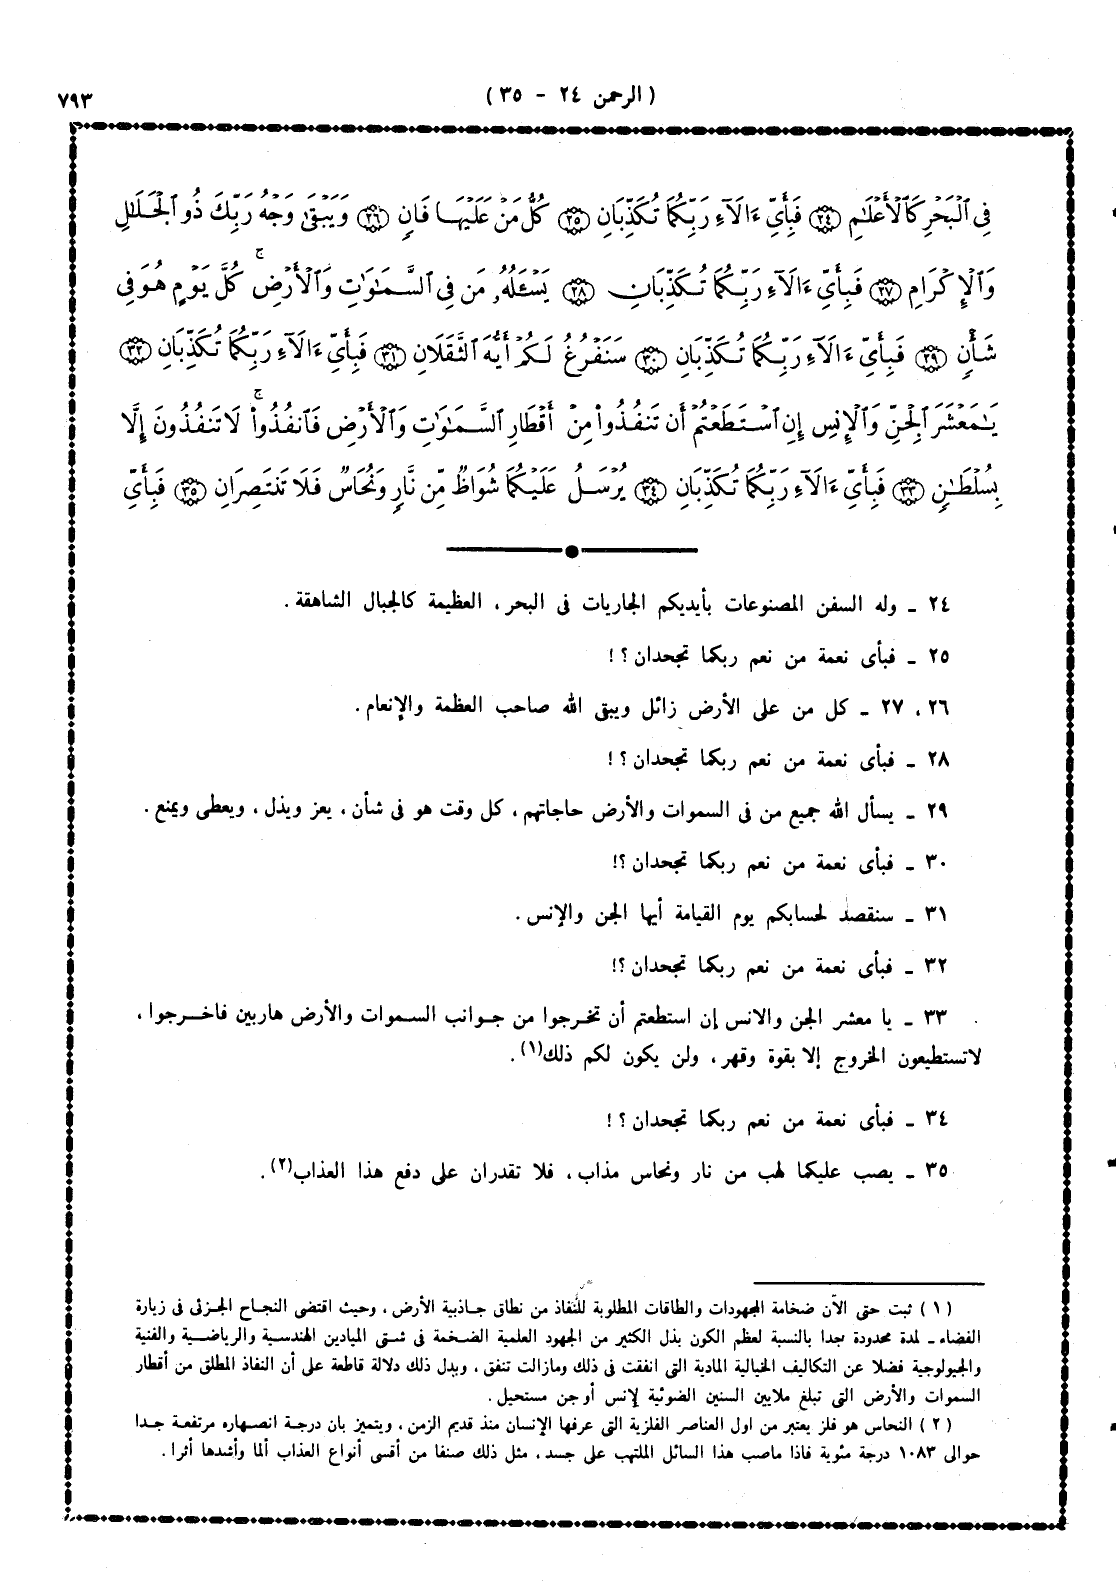 ( الرحمن ٢٤ - ٣٥ )
٧٩٣
فِى ٱلْبَحْرِ كَٱلْأَعْلَـٰمِ ٢٤ فَبِأَىِّ ءَالَآءِ رَبِّكُمَا تُكَذِّبَانِ ٢٥ كُلُّ مَنْ عَلَيْهَا فَانٍ ٢٦ وَيَبْقَىٰ وَجْهُ رَبِّكَ ذُو ٱلْجَلَـٰلِ
وَٱلْإِكْرَامِ ٢٧ فَبِأَىِّ ءَالَآءِ رَبِّكُمَا تُكَذِّبَانِ ٢٨ يَسْـَٔلُهُۥ مَن فِى ٱلسَّمَـٰوَٰتِ وَٱلْأَرْضِ ۚ كُلَّ يَوْمٍ هُوَ فِى
شَأْنٍ ٢٩ فَبِأَىِّ ءَالَآءِ رَبِّكُمَا تُكَذِّبَانِ ٣٠ سَنَفْرُغُ لَكُمْ أَيُّهَ ٱلثَّقَلَانِ ٣١ فَبِأَىِّ ءَالَآءِ رَبِّكُمَا تُكَذِّبَانِ ٣٢
يَـٰمَعْشَرَ ٱلْجِنِّ وَٱلْإِنسِ إِنِ ٱسْتَطَعْتُمْ أَن تَنفُذُوا۟ مِنْ أَقْطَارِ ٱلسَّمَـٰوَٰتِ وَٱلْأَرْضِ فَٱنفُذُوا۟ ۚ لَا تَنفُذُونَ إِلَّا
بِسُلْطَـٰنٍ ٣٣ فَبِأَىِّ ءَالَآءِ رَبِّكُمَا تُكَذِّبَانِ ٣٤ يُرْسَلُ عَلَيْكُمَا شُوَاظٌ مِّن نَّارٍ وَنُحَاسٌ فَلَا تَنتَصِرَانِ ٣٥ فَبِأَىِّ
٢٤ ـ وله السفن المصنوعات بأيديكم الجاريات فى البحر ، العظيمة كالجبال الشاهقة .
٢٥ ـ فبأى نعمة من نعم ربكما تجحدان ؟ !
٢٦ ، ٢٧ ـ كل من على الأرض زائل ويبقى الله صاحب العظمة والإنعام .
٢٨ ـ فبأى نعمة من نعم ربكما تجحدان ؟ !
٢٩ ـ يسأل الله جميع من فى السموات والأرض حاجاتهم ، كل وقت هو فى شأن ، يعز ويذل ، ويعطى ويمنع .
٣٠ ـ فبأى نعمة من نعم ربكما تجحدان ؟!
٣١ ـ سنقصد لحسابكم يوم القيامة أيها الجن والإنس .
٣٢ ـ فبأى نعمة من نعم ربكما تجحدان ؟!
٣٣ ـ يا معشر الجن والانس إن استطعتم أن تخرجوا من جوانب السموات والأرض هاربين فاخرجوا ،
لاتستطيعون الخروج إلا بقوة وقهر ، ولن يكون لكم ذلك(١) .
٣٤ ـ فبأى نعمة من نعم ربكما تجحدان ؟ !
٣٥ ـ يصب عليكما لهب من نار ونحاس مذاب ، فلا تقدران على دفع هذا العذاب(٢) .
( ١ ) ثبت حتى الآن ضخامة المجهودات والطاقات المطلوبة للنَّفاذ من نطاق جاذبية الأرض ، وحيث اقتضى النجاح الجزئى فى زيارة
الفضاء ـ لمدة محدودة جدا بالنسبة لعظم الكون بذل الكثير من الجهود العلمية الضخمة فى شتى الميادين الهندسية والرياضية والفنية
والجيولوجية فضلا عن التكاليف الخيالية المادية التى انفقت فى ذلك ومازالت تنفق ، ويدل ذلك دلالة قاطعة على أن النفاذ المطلق من أقطار
السموات والأرض التى تبلغ ملايين السنين الضوئية لإنس أو جن مستحيل .
( ٢ ) النحاس هو فلز يعتبر من اول العناصر الفلزية التى عرفها الإنسان منذ قديم الزمن ، ويتميز بان درجة انصهاره مرتفعة جدا
حوالى ١٠٨٣ درجة مئوية فاذا ماصب هذا السائل الملتهب على جسد ، مثل ذلك صنفا من أقسى أنواع العذاب ألما وأشدها أثرا .